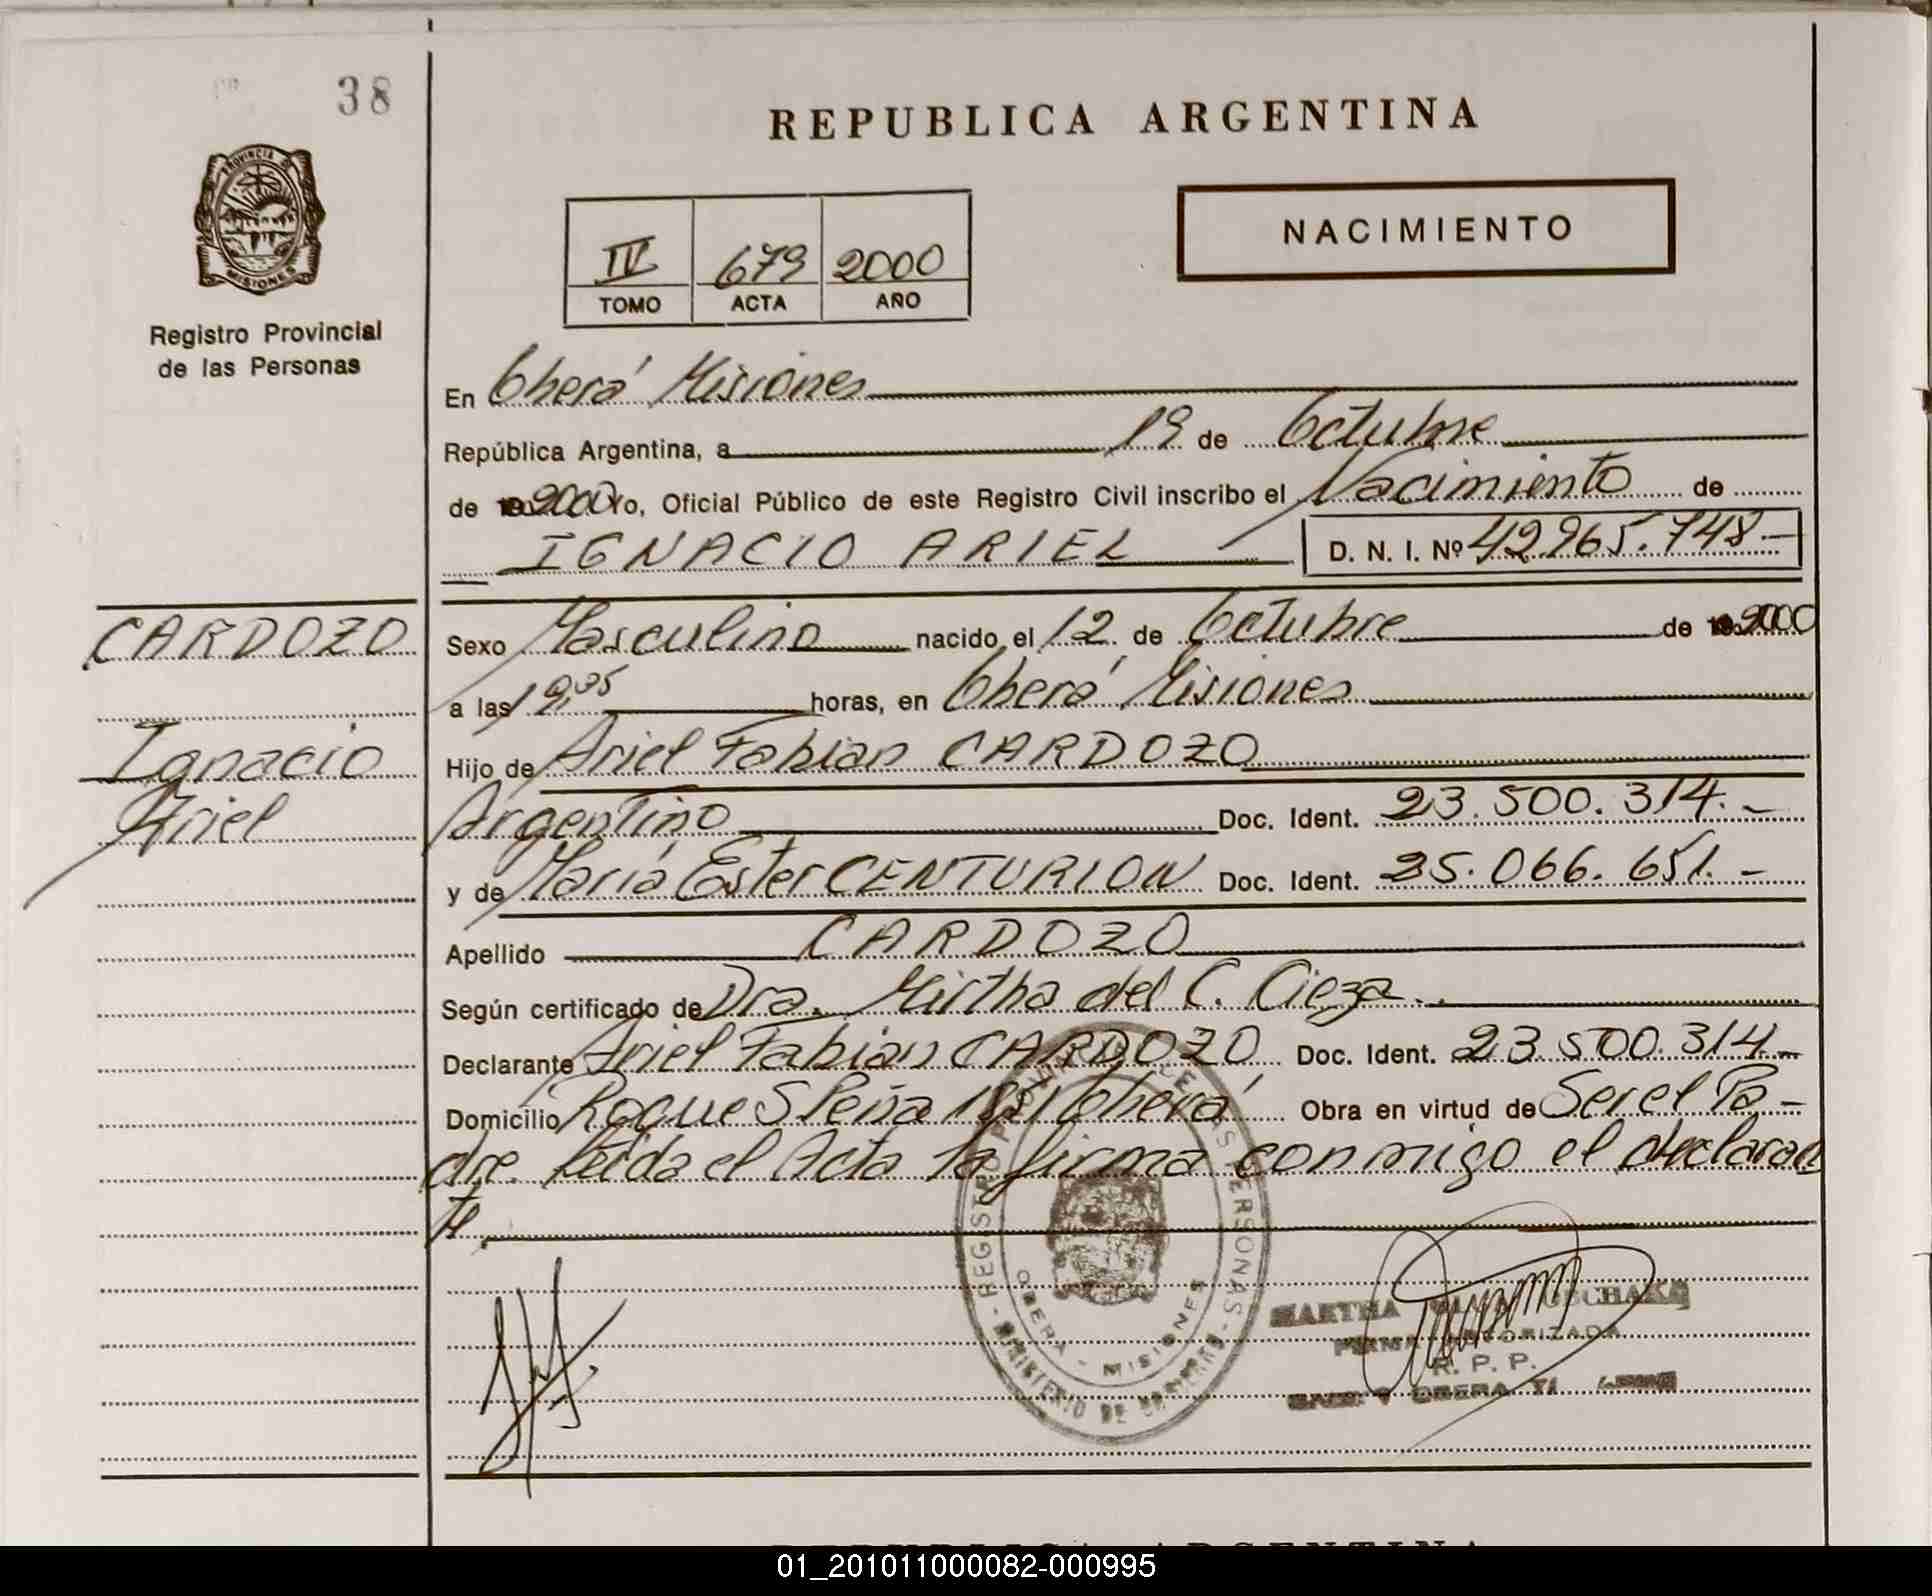 38
PROVINCIA DE
MISIONES
Registro Provincial
de las Personas
REPUBLICA ARGENTINA
NACIMIENTO
IV 679 2000
TOMO ACTA AÑO
En Oberá Misiones
República Argentina, a 19 de Octubre
de 2000 yo, Oficial Público de este Registro Civil inscribo el Nacimiento de
IGNACIO ARIEL D. N. I. Nº 42.965.748.-
CARDOZO
Ignacio
Ariel
Sexo Masculino nacido el 12 de Octubre de 2000
a las 19,05 horas, en Oberá Misiones
Hijo de Ariel Fabian CARDOZO
Argentino Doc. Ident. 23.500.314.-
y de María Ester CENTURION Doc. Ident. 25.066.651.-
Apellido CARDOZO
Según certificado de Dra. Mirtha del C. Cieza.
Declarante Ariel Fabian CARDOZO Doc. Ident. 23.500.314.-
Domicilio Roque S Peña Oberá Obra en virtud de Ser el Pa-
dre. Leída el Acta la firma conmigo el declaran
te.
REGISTRO PERSONAS
OBERA - MISIONES
MARTHA
FIRMA AUTORIZADA
R. P. P.
OBERA
REPUBLICA ARGENTINA
01_201011000082-000995